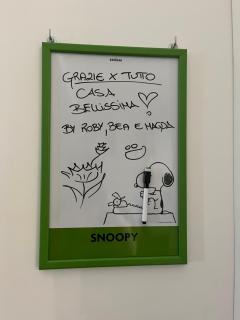 GRAZIE X TUTTO
CASA
BELLISSIMA
BY ROBY, BEA E MAGDA
SNOOPY